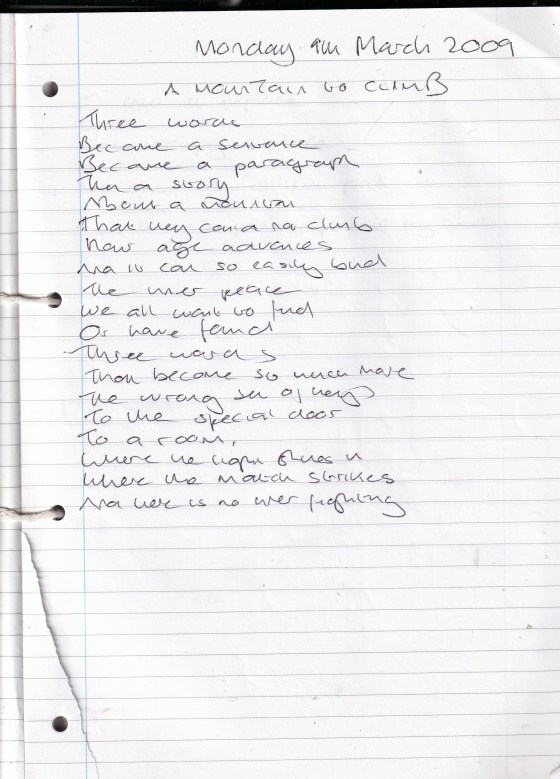 Monday 9th March 2009
A Mountain to CLIMB
Three words
Became a sentence
Became a paragraph
Then a story
About a mountain
That they could not climb
How age advances
And it can so easily bind
The inner peace
We all want to find
Or have found
Three words
That become so much more
The wrong set of keys
To the special door
To a room,
Where the light shines in
Where the match strikes
And there is no inner fighting